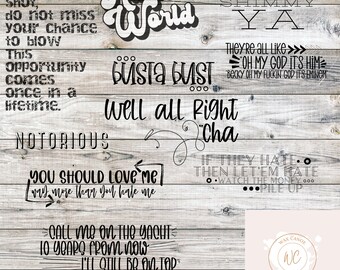 shot,
do not miss
your chance
to blow
This
opportunity
comes
once in a
lifetime.
World
SHIMMY
YA
THEY'RE ALL LIKE
OH MY GOD IT'S HIM
BECKY OH MY FUCKIN' GOD IT'S EMINEM
BUSTA BUST
Well All Right
Cha
NOTORIOUS
YOU SHOULD LOVE ME
WAY MORE THAN YOU HATE ME
IF THEY HATE
THEN LET'EM HATE
WATCH THE MONEY
PILE UP
CALL ME ON THE YACHT
10 YEARS FROM NOW
I'LL STILL BE ON TOP
WC